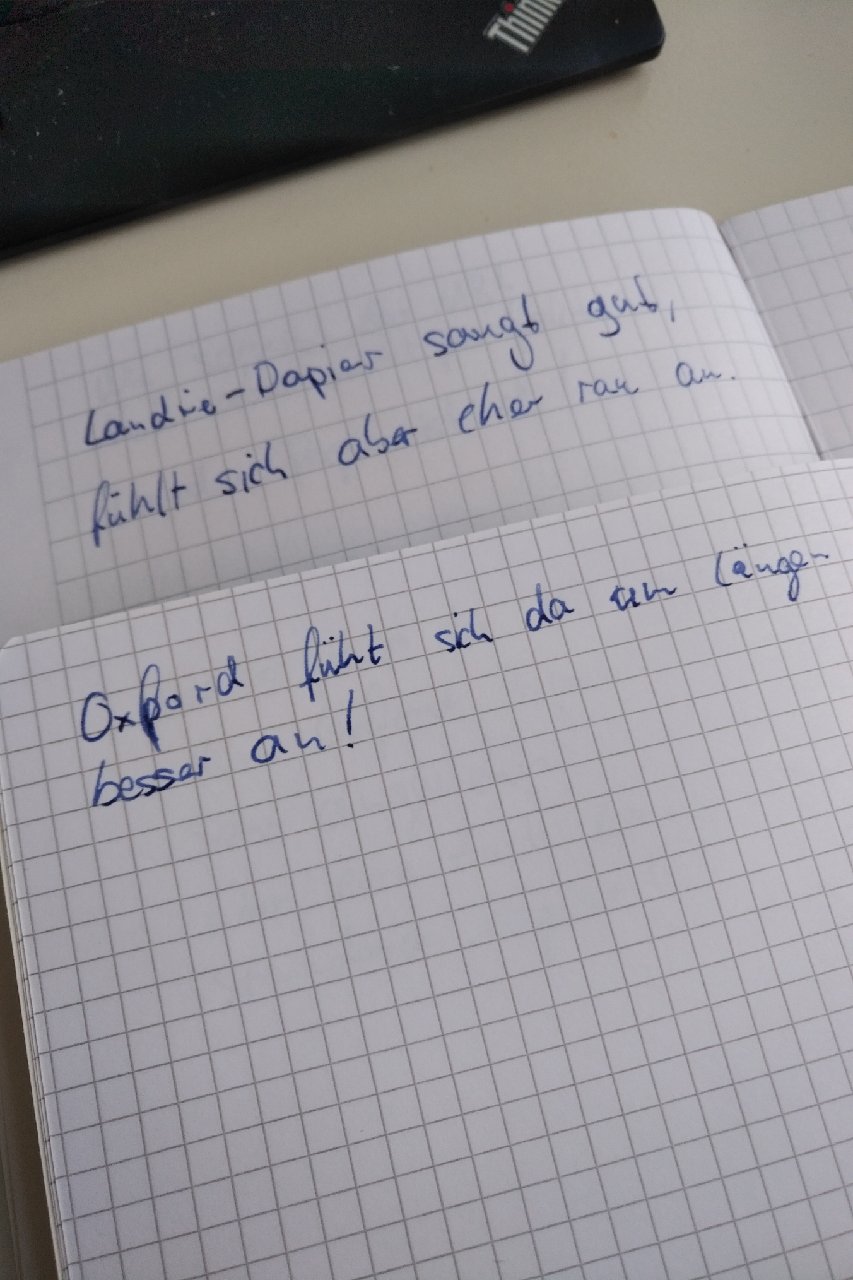 Think
Landre-Papier saugt gut,
fühlt sich aber eher rau an.
Oxford fühlt sich da um längen
besser an!